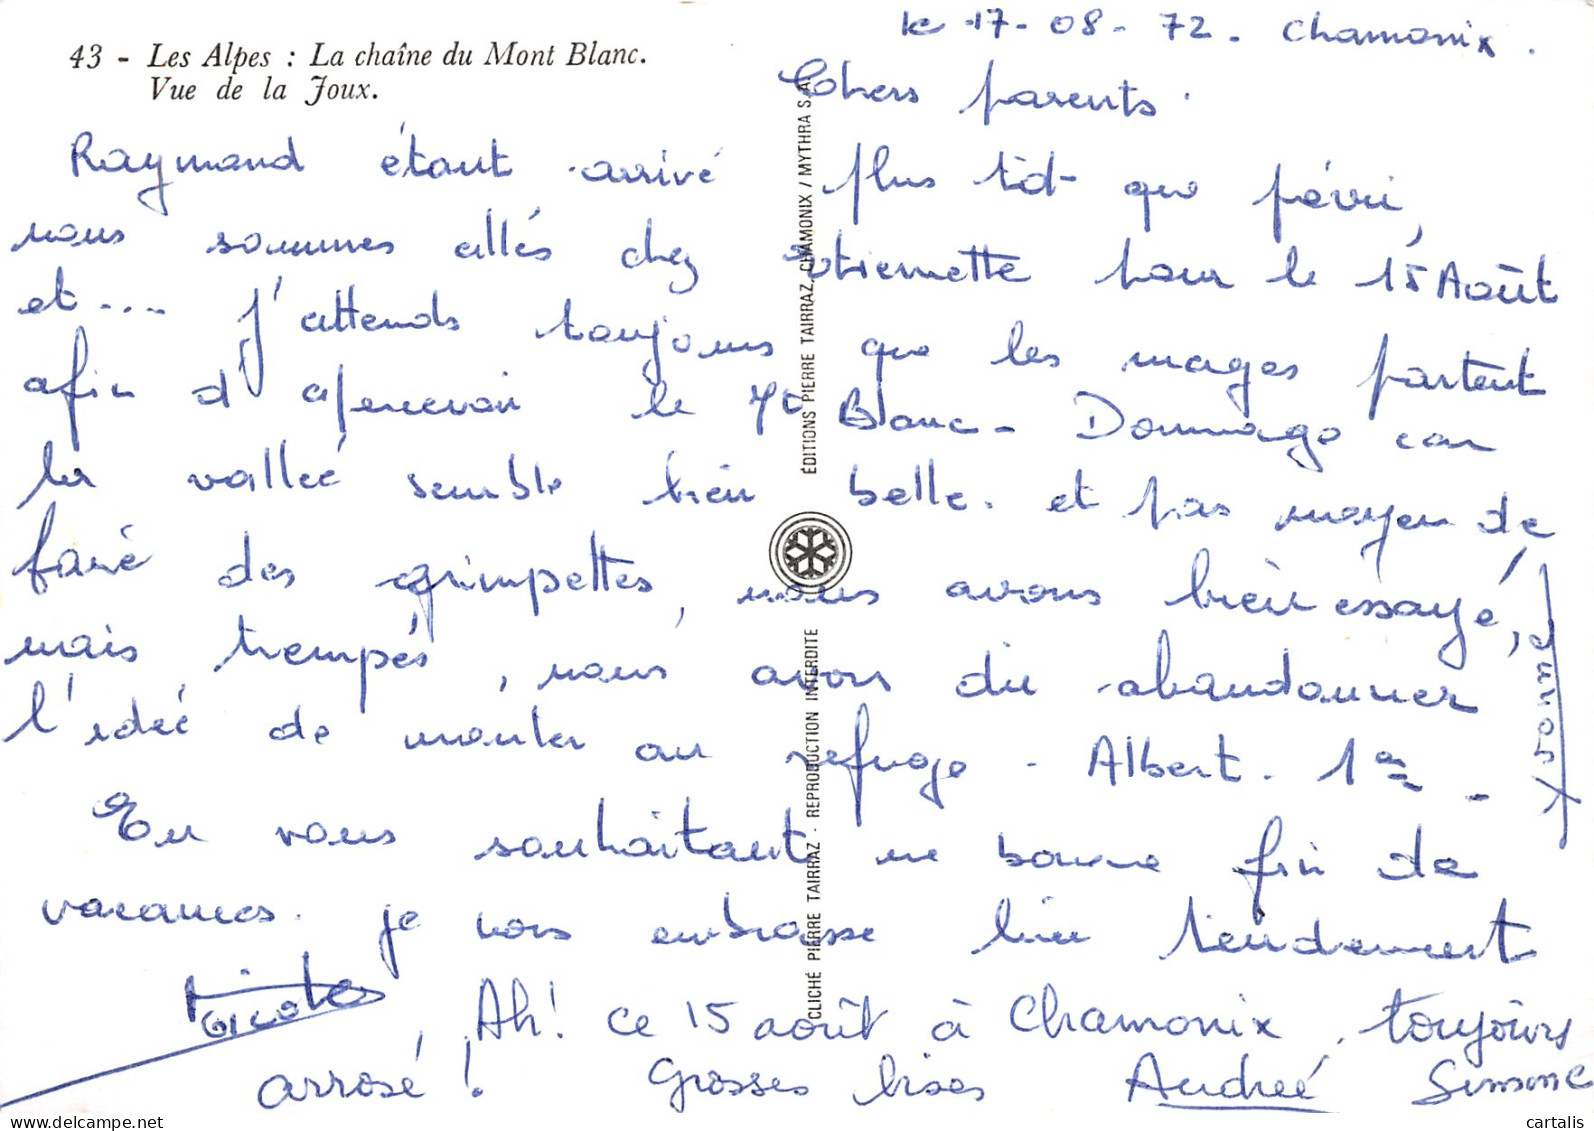 43 - Les Alpes : La chaîne du Mont Blanc.
Vue de la Joux.
le 17-08-72. Chamonix.
Chers parents.
Raymond étant arrivé plus tôt que prévu,
nous sommes allés chez Etiennette pour le 15 Août
et.... J'attends toujours que les nuages partent
afin d'apercevoir le Mt Blanc - Dommage car
la vallée semble bien belle. et pas moyen de
faire des grimpettes, nous avons bien essayé,
mais trempés, nous avons dû abandonner
l'idée de monter au refuge - Albert. 1er -
En vous souhaitant une bonne fin de
vacances. je vous embrasse bien tendrement
Nicole
Ah! ce 15 août à Chamonix, toujours
arrosé! Grosses bises Andrée Simone
ÉDITIONS PIERRE TAIRRAZ, CHAMONIX / MYTHRA S.A.
CLICHÉ PIERRE TAIRRAZ - REPRODUCTION INTERDITE
cartalis